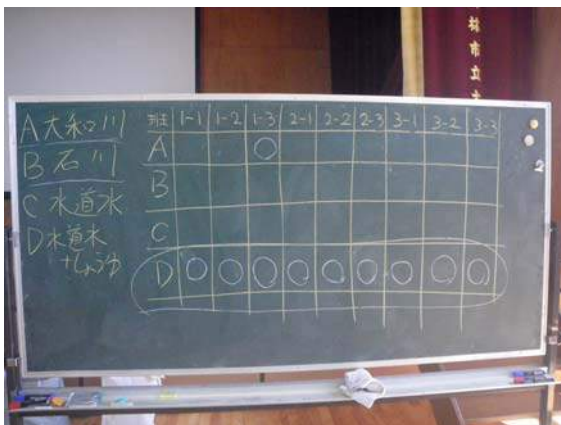 A 大和川
B 石川
C 水道水
D 水道水
+しょうゆ
班 1-1 1-2 1-3 2-1 2-2 2-3 3-1 3-2 3-3
A ○
B
C
D ○ ○ ○ ○ ○ ○ ○ ○ ○
2
林市立